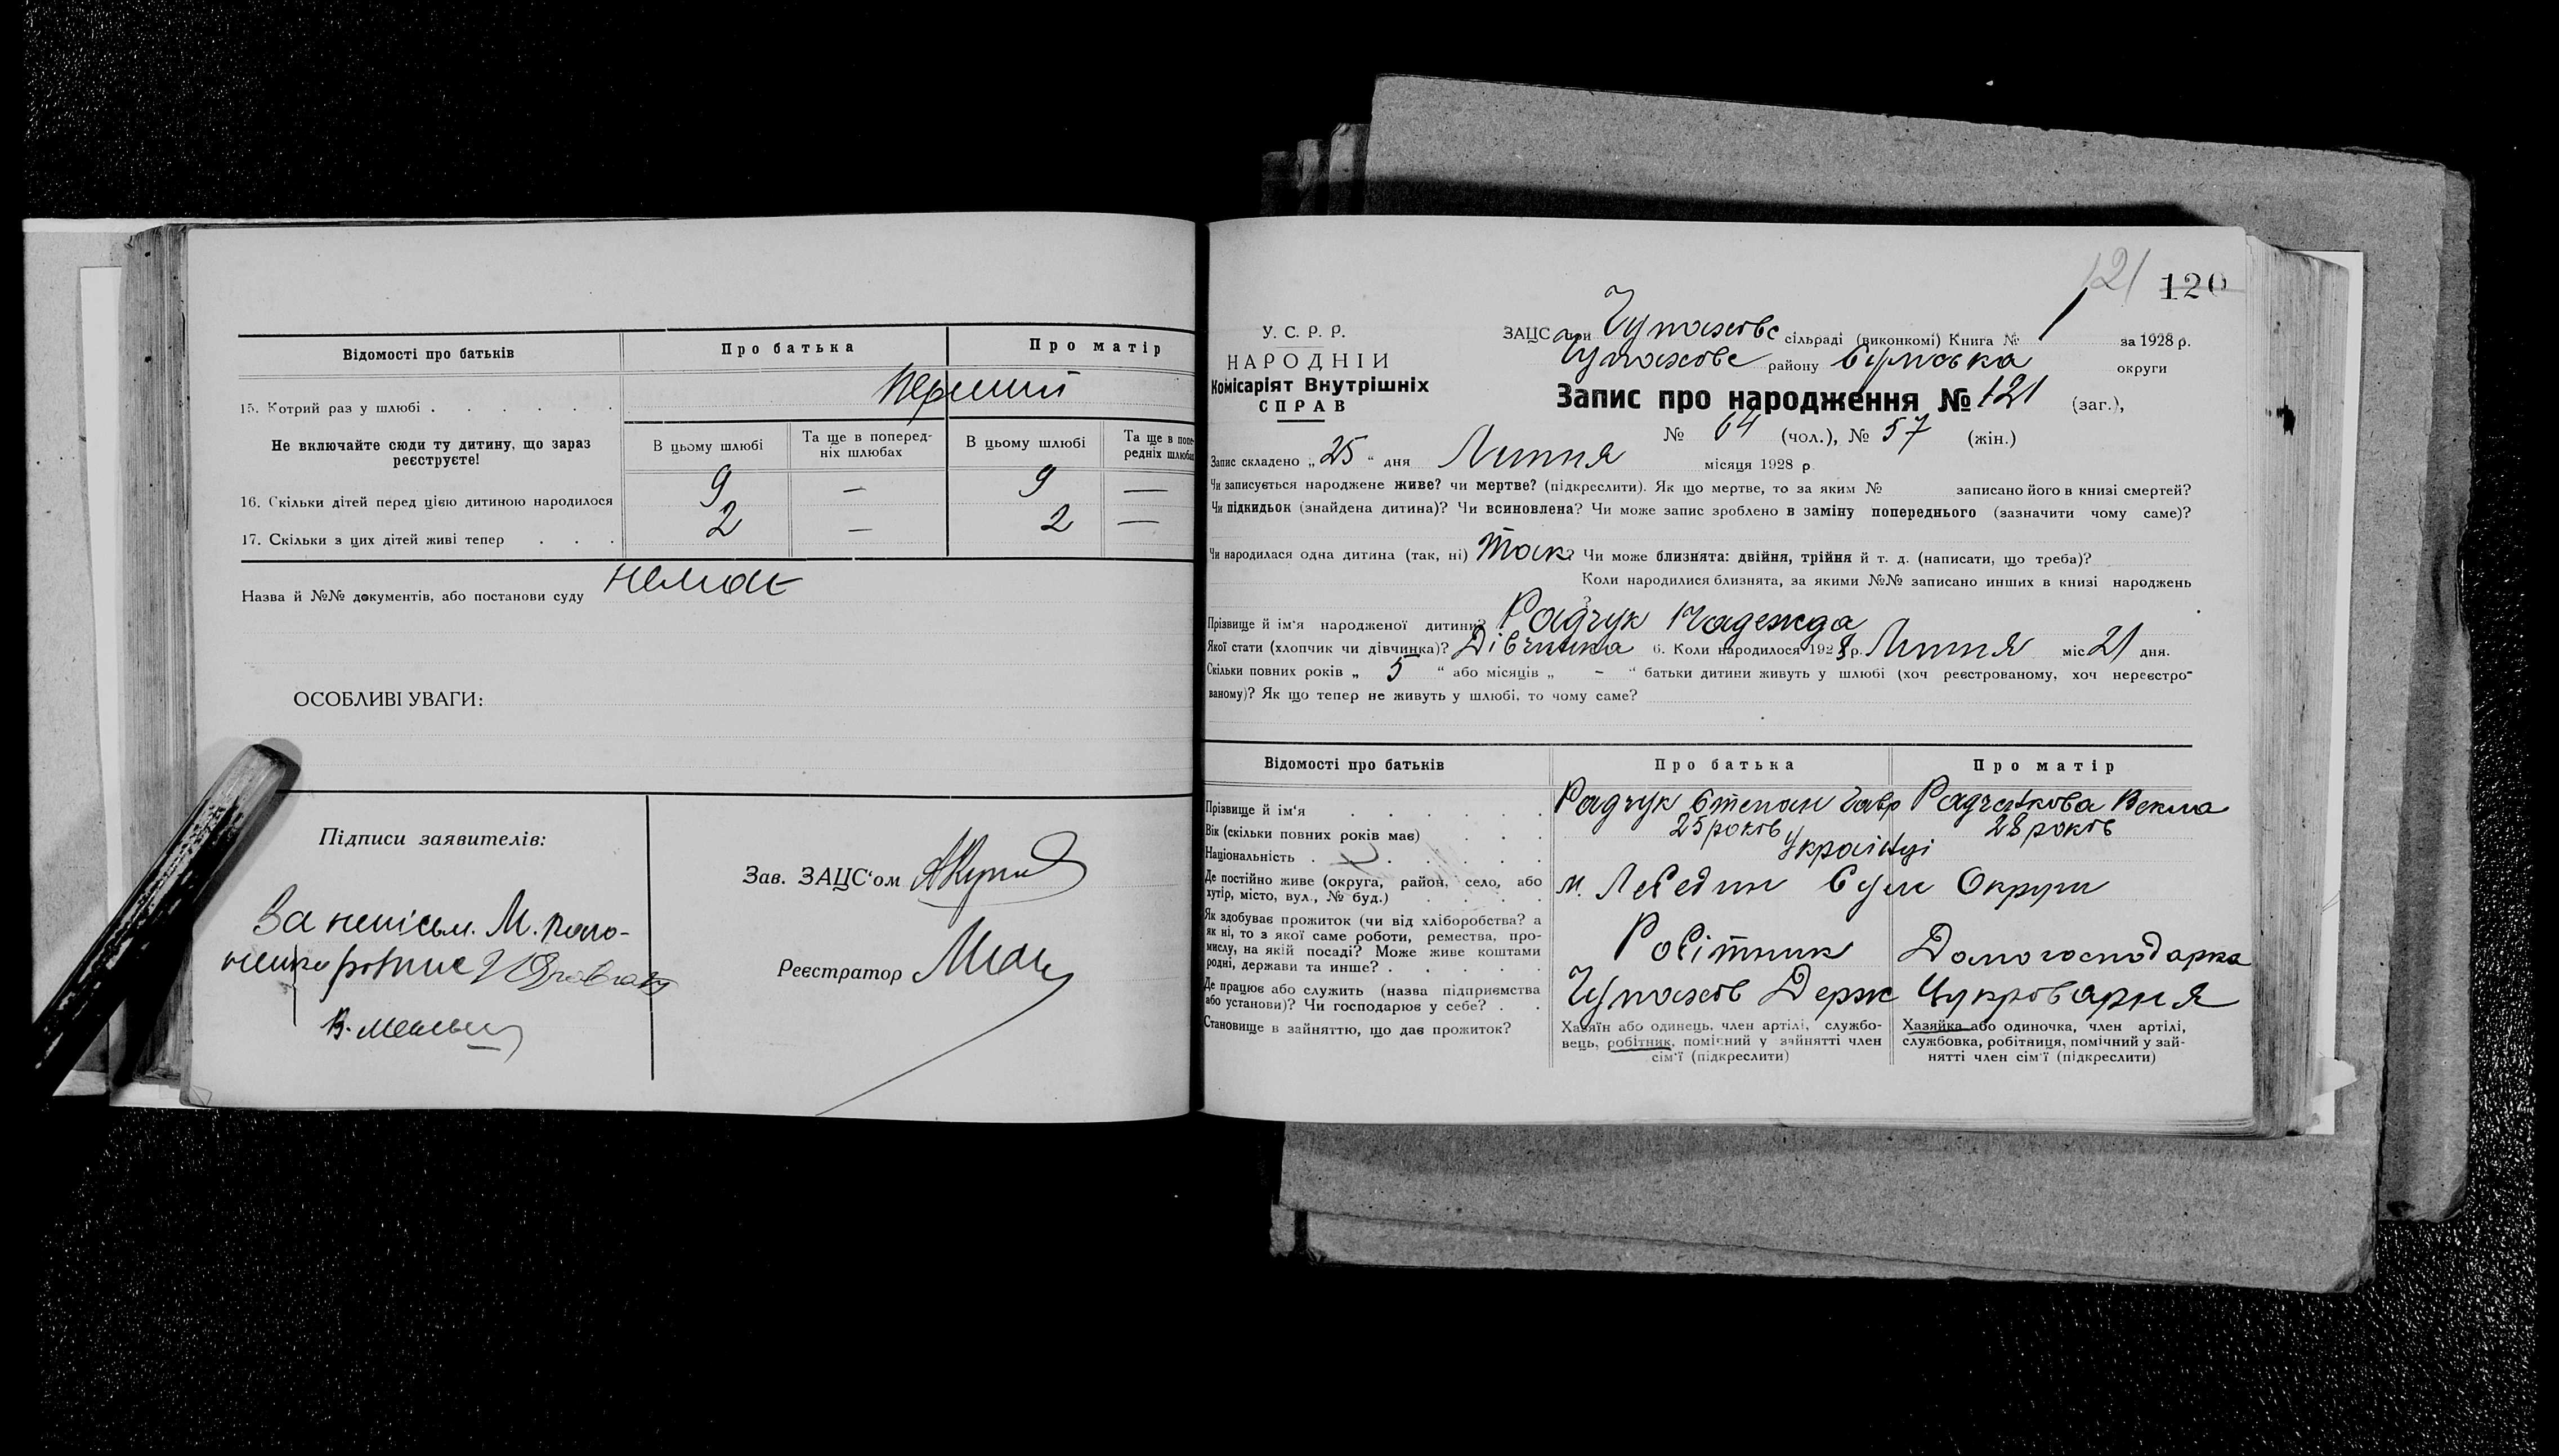 Відомості про батьків
Про батька
Про матір
15. Котрий раз у шлюбі
перший
Не включайте сюди ту дитину, що зараз реєструєте!
В цьому шлюбі
Та ще в поперед-
ніх шлюбах
В цьому шлюбі
Та ще в попе-
редніх шлюбах
16. Скільки дітей перед цією дитиною народилося 9 — 9 —
17. Скільки з цих дітей живі тепер 2 — 2 —
Назва й №№ документів, або постанови суду немає
ОСОБЛИВІ УВАГИ:
Підписи заявителів:
За неписьм. М.
Зав. ЗАЦС'ом
Реєстратор
121 120
У. С. Р. Р.
НАРОДНІЙ
Комісаріят Внутрішніх
СПРАВ
ЗАЦС при Чупахове сільраді (виконкомі) Книга № 1 за 1928 р.
Чупахове району Сумська округи
Запис про народження № 121 (заг.),
№ 64 (чол.), № 57 (жін.)
Запис складено „25“ дня Липня місяця 1928 р.
Чи записується народжене живе? чи мертве? (підкреслити). Як що мертве, то за яким № записано його в книзі смертей?
Чи підкидьок (знайдена дитина)? Чи всиновлена? Чи може запис зроблено в заміну попереднього (зазначити чому саме)?
Чи народилася одна дитина (так, ні) Так? Чи може близнята: двійня, трійня й т. д. (написати, що треба)?
Коли народилися близнята, за якими №№ записано инших в книзі народжень
?
Прізвище й ім'я народженої дитини? Радчук Надежда
Якої стати (хлопчик чи дівчинка)? Дівчинка 6. Коли народилося 1928 р. Липня міс 21 дня.
Скільки повних років „ 5 “ або місяців „ - “ батьки дитини живуть у шлюбі (хоч реєстрованому, хоч нереєстро-
ваному)? Як що тепер не живуть у шлюбі, то чому саме?
Відомості про батьків
Про батька
Про матір
Прізвище й ім'я Радчук Степан Гавр Радчукова Векла
Вік (скільки повних років має) 25 років 28 років
Національність Українці
Де постійно живе (округа, район, село, або
хутір, місто, вул., № буд.)
м. Лебедин Сум Округи
Як здобуває прожиток (чи від хліборобства? а
як ні, то з якої саме роботи, ремества, про-
мислу, на якій посаді? Може живе коштами
родні, держави та инше?
Робітник
Домогосподарка
Де працює або служить (назва підприємства
або установи)? Чи господарює у себе?
Чупахов Держ Цукроварня
Становище в зайняттю, що дає прожиток?
Хазяїн або одинець, член артілі, службо-
вець, робітник, помічний у зайнятті член
сім'ї (підкреслити)
Хазяйка або одиночка, член артілі,
службовка, робітниця, помічний у зай-
нятті член сім'ї (підкреслити)